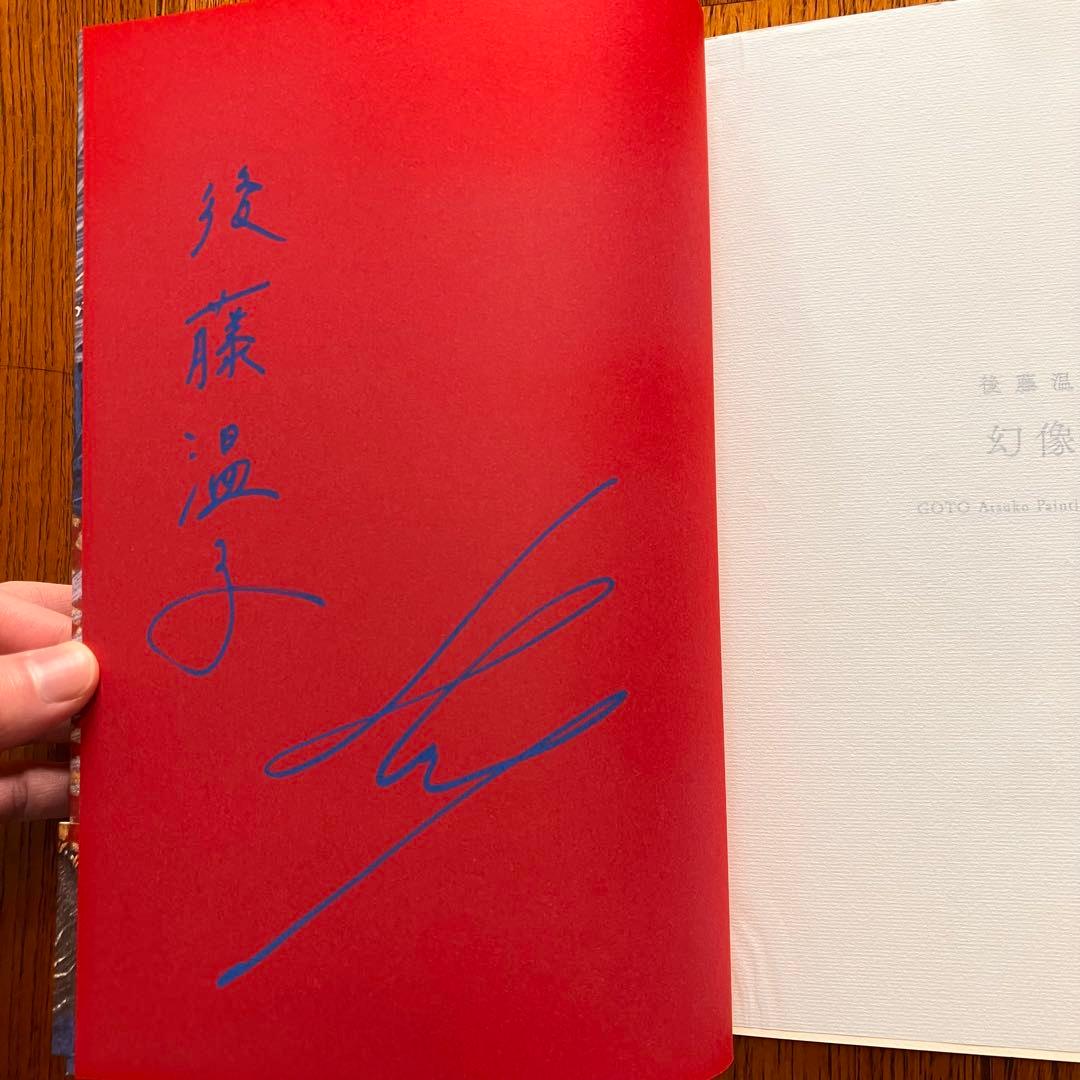 後藤温子
後藤温
幻像
GOTO Atsuko Painti